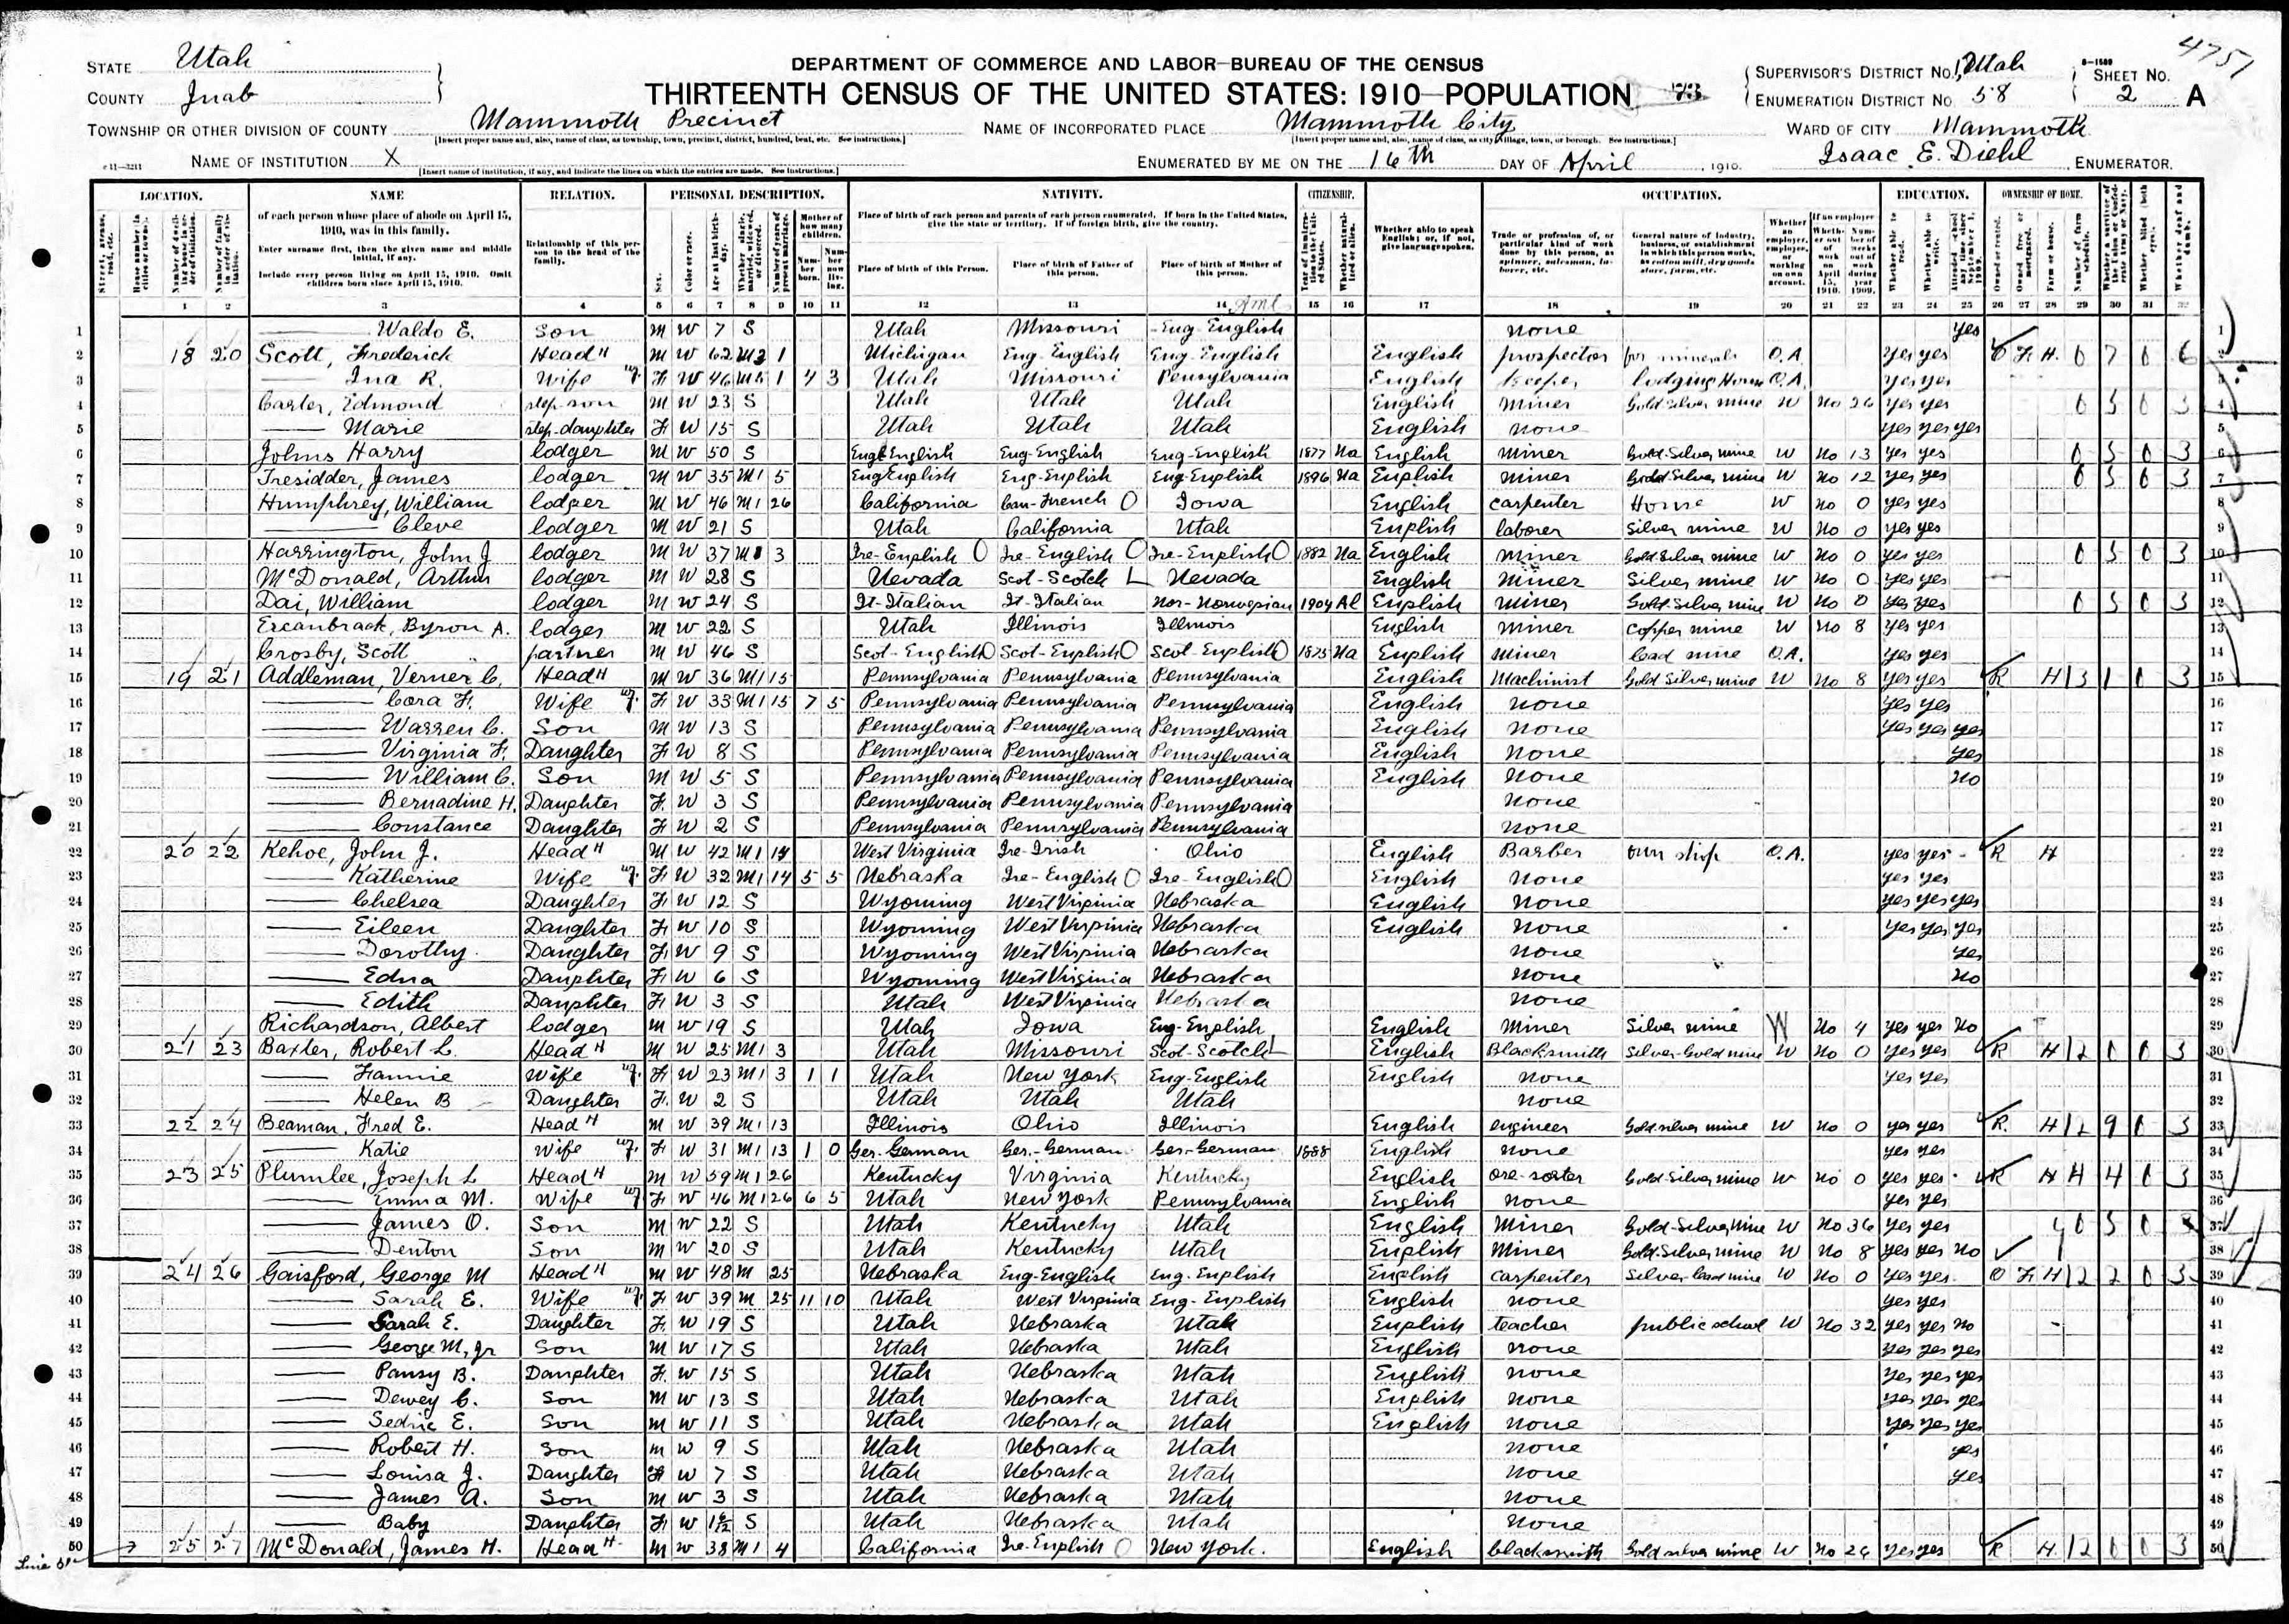 4751
STATE Utah
COUNTY Juab
DEPARTMENT OF COMMERCE AND LABOR—BUREAU OF THE CENSUS
THIRTEENTH CENSUS OF THE UNITED STATES: 1910—POPULATION 73
SUPERVISOR'S DISTRICT NO. 1, Utah
ENUMERATION DISTRICT NO. 58
SHEET NO. 2 A
TOWNSHIP OR OTHER DIVISION OF COUNTY Mammoth Precinct
NAME OF INCORPORATED PLACE Mammoth City
WARD OF CITY Mammoth
NAME OF INSTITUTION X
ENUMERATED BY ME ON THE 16th DAY OF April, 1910.
Isaac E. Diehl ENUMERATOR.
LOCATION. NAME RELATION. PERSONAL DESCRIPTION. NATIVITY. CITIZENSHIP. OCCUPATION. EDUCATION. OWNERSHIP OF HOME.
of each person whose place of abode on April 15, 1910, was in this family.
Enter surname first, then the given name and middle initial, if any.
Include every person living on April 15, 1910. Omit children born since April 15, 1910.
Relationship of this person to the head of the family.
Place of birth of each person and parents of each person enumerated. If born in the United States, give the state or territory. If of foreign birth, give the country.
Place of birth of this Person. Place of birth of Father of this person. Place of birth of Mother of this person.
Whether able to speak English; or, if not, give language spoken.
1 2 3 4 5 6 7 8 9 10 11 12 13 14 15 16 17 18 19 20 21 22 23 24 25 26 27 28 29 30 31 32
1 Waldo E. Son M W 7 S Utah Missouri Eng-English none yes 1
2 18 20 Scott, Frederick Head M W 62 M2 1 Michigan Eng-English Eng-English English prospector for minerals O.A. yes yes O F H. 0 7 0 6
3 Ina R. Wife F W 46 1 4 3 Utah Missouri Pensylvania English keeper lodging House O.A. yes yes 3
4 Carter, Edmond step-son M W 23 S Utah Utah Utah English Miner Gold silver mine W No 26 yes yes 0 5 0 3 4
5 Marie step-daughter F W 15 S Utah Utah Utah English none yes yes yes 5
6 Johns Harry lodger M W 50 S Eng English Eng-English Eng-English 1877 Na English miner Gold-Silver mine W No 13 yes yes 0 5 0 3 6
7 Tresidder, James lodger M W 35 M1 5 Eng English Eng-English Eng-English 1896 Na English miner Gold Silver mine W No 12 yes yes 0 5 0 3 7
8 Humphrey, William lodger M W 46 M1 26 California Can-French Iowa English carpenter House W No 0 yes yes 8
9 Cleve lodger M W 21 S Utah California Utah English laborer Silver mine W No 0 yes yes 9
10 Harrington, John J lodger M W 37 3 Ire-English Ire-English Ire-English 1882 Na English miner Gold Silver mine W No 0 yes yes 0 5 0 3 10
11 McDonald, Arthur lodger M W 28 S Nevada Scot-Scotch Nevada English Miner Silver mine W No 0 yes yes 11
12 Dai, William lodger M W 24 S It-Italian It-Italian Nor-Norwegian 1904 Al English miner Gold Silver mine W No 0 yes yes 0 5 0 3 12
13 Ercanbrack, Byron A. lodger M W 22 S Utah Illinois Illinois English miner Copper mine W No 8 yes yes 13
14 Crosby, Scott partner M W 46 S Scot-English Scot-English Scot-English 1875 Na English miner lead mine O.A. yes yes 14
15 19 21 Addleman, Verner C. Head M W 36 M1 15 Pennsylvania Pennsylvania Pennsylvania English Machinist Gold Silver mine W No 8 yes yes R H 3 1 0 3 15
16 Cora F. Wife F W 33 M1 15 7 5 Pennsylvania Pennsylvania Pennsylvania English none yes yes 16
17 Warren C. Son M W 13 S Pennsylvania Pennsylvania Pennsylvania English none yes yes yes 17
18 Virginia F. Daughter F W 8 S Pennsylvania Pennsylvania Pennsylvania English none yes 18
19 William C. Son M W 5 S Pennsylvania Pennsylvania Pennsylvania English none no 19
20 Bernadine H. Daughter F W 3 S Pennsylvania Pennsylvania Pennsylvania none 20
21 Constance Daughter F W 2 S Pennsylvania Pennsylvania Pennsylvania none 21
22 20 22 Kehoe, John J. Head M W 42 M1 14 West Virginia Ire-Irish Ohio English Barber own shop O.A. yes yes R H 22
23 Katherine Wife F W 32 M1 14 5 5 Nebraska Ire-English Ire-English English none yes yes 23
24 Chelsea Daughter F W 12 S Wyoming West Virginia Nebraska English none yes yes yes 24
25 Eileen Daughter F W 10 S Wyoming West Virginia Nebraska English none yes yes yes 25
26 Dorothy Daughter F W 9 S Wyoming West Virginia Nebraska none yes 26
27 Edna Daughter F W 6 S Wyoming West Virginia Nebraska none no 27
28 Edith Daughter F W 3 S Utah West Virginia Nebraska none 28
29 Richardson, Albert lodger M W 19 S Utah Iowa Eng-English English Miner Silver mine W No 4 yes yes no 29
30 21 23 Baxter, Robert L. Head M W 25 M1 3 Utah Missouri Scot-Scotch English Blacksmith Silver-Gold mine W No 0 yes yes R H 2 0 0 3 30
31 Fannie Wife F W 23 M1 3 1 1 Utah New York Eng-English English none yes yes 31
32 Helen B Daughter F W 2 S Utah Utah Utah none 32
33 22 24 Beaman, Fred E. Head M W 39 M1 13 Illinois Ohio Illinois English engineer Gold silver mine W No 0 yes yes R. H 2 9 0 3 33
34 Katie Wife F W 31 M1 13 1 0 Ger-German Ger-German Ger-German 1888 English none yes yes 34
35 23 25 Plumlee, Joseph L Head M W 59 M1 26 Kentucky Virginia Kentucky English ore-sorter Gold-Silver mine W No 0 yes yes R H H 4 0 3 35
36 Emma M. Wife F W 46 M1 26 6 5 Utah New York Pennsylvania English none yes yes 36
37 James O. Son M W 22 S Utah Kentucky Utah English Miner Gold-Silver mine W No 36 yes yes 0 5 0 37
38 Denton Son M W 20 S Utah Kentucky Utah English Miner Gold-Silver mine W No 8 yes yes no 38
39 24 26 Gaisford, George M Head M W 48 M 25 Nebraska Eng-English Eng-English English carpenter Silver-lead mine W No 0 yes yes O F H 2 2 0 3 39
40 Sarah E. Wife F W 39 M 25 11 10 Utah West Virginia Eng-English English none yes yes 40
41 Sarah E. Daughter F W 19 S Utah Nebraska Utah English teacher public school W No 32 yes yes no 41
42 George M, Jr Son M W 17 S Utah Nebraska Utah English none yes yes yes 42
43 Pansy B. Daughter F W 15 S Utah Nebraska Utah English none yes yes yes 43
44 Dewey C. Son M W 13 S Utah Nebraska Utah English none yes yes yes 44
45 Sedric E. Son M W 11 S Utah Nebraska Utah English none yes yes yes 45
46 Robert H. Son M W 9 S Utah Nebraska Utah none yes 46
47 Louisa J. Daughter F W 7 S Utah Nebraska Utah none yes 47
48 James A. Son M W 3 S Utah Nebraska Utah none 48
49 Baby Daughter F W S Utah Nebraska Utah none 49
50 25 27 McDonald, James H. Head M W 38 M1 4 California Ire-English New York. English blacksmith Gold silver mine W No 26 yes yes R H. 2 0 0 3 50